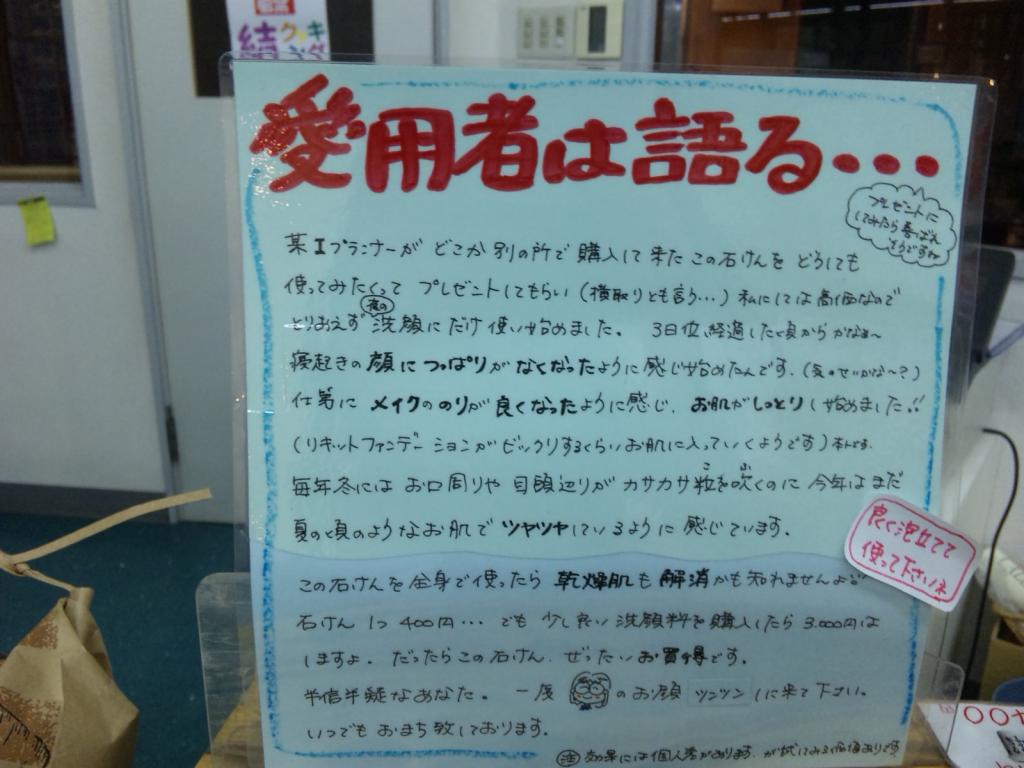 続 クッキング
愛用者は語る・・・
プレゼントに
してみたら喜ばれ
そうですね
某Iプランナーが どこか別の所で購入して来たこの石けんを どうしても
使ってみたくって プレゼントしてもらい(横取りとも言う…)私にしては高価なので
とりあえず 夜の 洗顔にだけ使い始めました。 3日位、経過した頃からかなぁ〜
寝起きの顔につっぱりがなくなったように感じ始めたんです。(気のせいかな〜?)
仕第に メイクののりが良くなったように感じ、お肌がしっとりし始めました!!
(リキットファンデーションがビックリするくらいお肌に入っていくようです)本人です。
毎年冬には お口周りや 目頭辺りが カサカサ粒を吹くのに 今年はまだ
こ ふ
夏の頃のようなお肌で ツヤツヤしているように 感じています。
良く泡立てて
使って下さいネ
この石けんを 全身で使ったら 乾燥肌も 解消かも知れませんよ
石けん 1つ 400円… でも 少し良い 洗顔料を購入したら 3.000円は
しますよ。だったらこの石けん、ぜったいお買得です。
半信半疑なあなた。 一度 のお顔 ツンツン しに来て下さい。
いつでも おまち致しております。
注 効果には個人差があります。が試してみる価値ありです